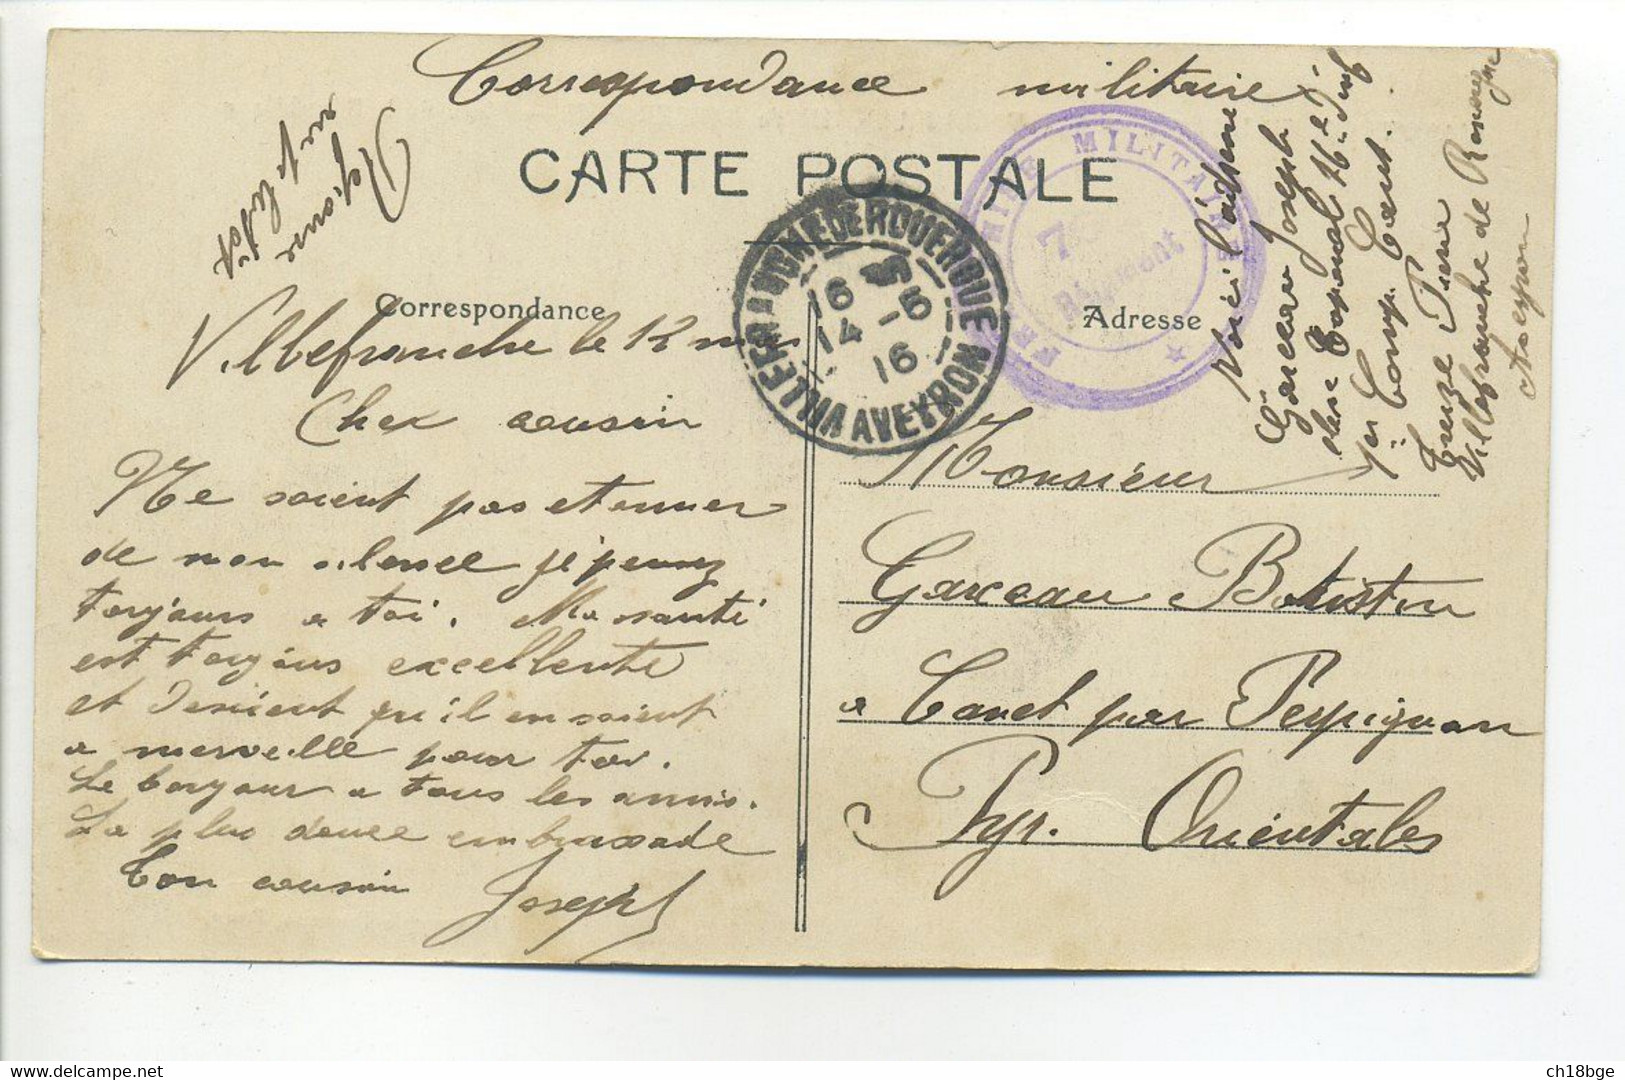 Correspondance militaire
CARTE POSTALE
Correspondance
Adresse
Reponse
au plutot
Villefranche le 12 mai
Cher cousin
Ne soient pas etonner
de mon silence je pensez
toujours a toi. Ma santé
est toujours excellente
et desirent qu'il en soient
a merveille pour toi.
Le bonjour a tous les amis.
La plus douce embrassade
Ton cousin Joseph
VILLEFRANCHE DE ROUERGUE
AVEYRON
16 14
5 - 5
16
FRANCHISE MILITAIRE
7
Voici l'adresse
Garceau Joseph
classe
Comp. Cant.
Treize Pierre
Villefranche de Rouergue
Aveyron
Monsieur
Garceau Batistin
a Canet par Perpignan
Pyr. Orientales
ch18bge